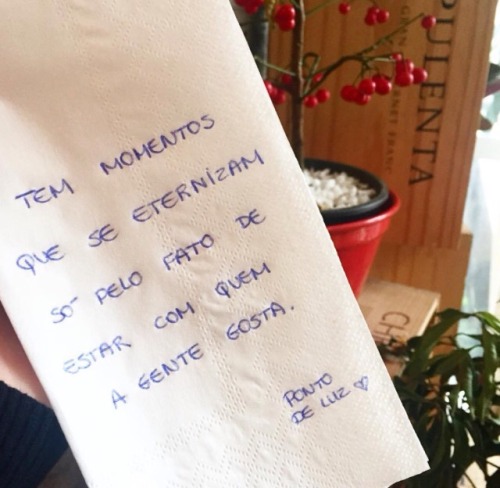 TEM MOMENTOS
QUE SE ETERNIZAM
SÓ PELO FATO DE
ESTAR COM QUEM
A GENTE GOSTA.
PONTO
DE LUZ ♡
PUIENTA
CABERNET FRANC